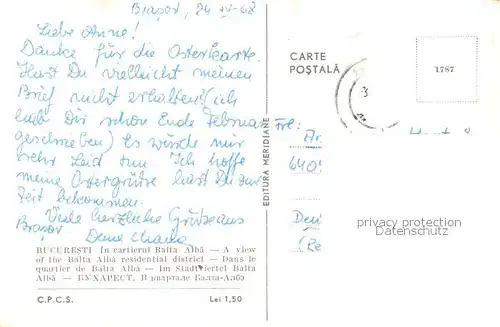 Brașov, 24 IV-68
Liebe Anne!
Danke für die Osterkarte.
Hast Du vielleicht meinen
Brief nicht erhalten? (ich
hab Dir schon Ende Februar
geschrieben) Es würde mir
sehr Leid tun. Ich hoffe
meine Ostergrüße hast Du zur
Zeit bekommen.
Viele herzliche Grüße aus
Brașov Deine
BUCUREȘTI In cartierul Balta Albă — A view
of the Balta Albă residential district — Dans le
quartier de Balta Albă — Im Stadtviertel Balta
Albă — БУХАРЕСТ. В квартале Балта-Албэ
C.P.C.S. Lei 1,50
EDITURA MERIDIANE
CARTE
POȘTALĂ
1787
privacy protection
watermark